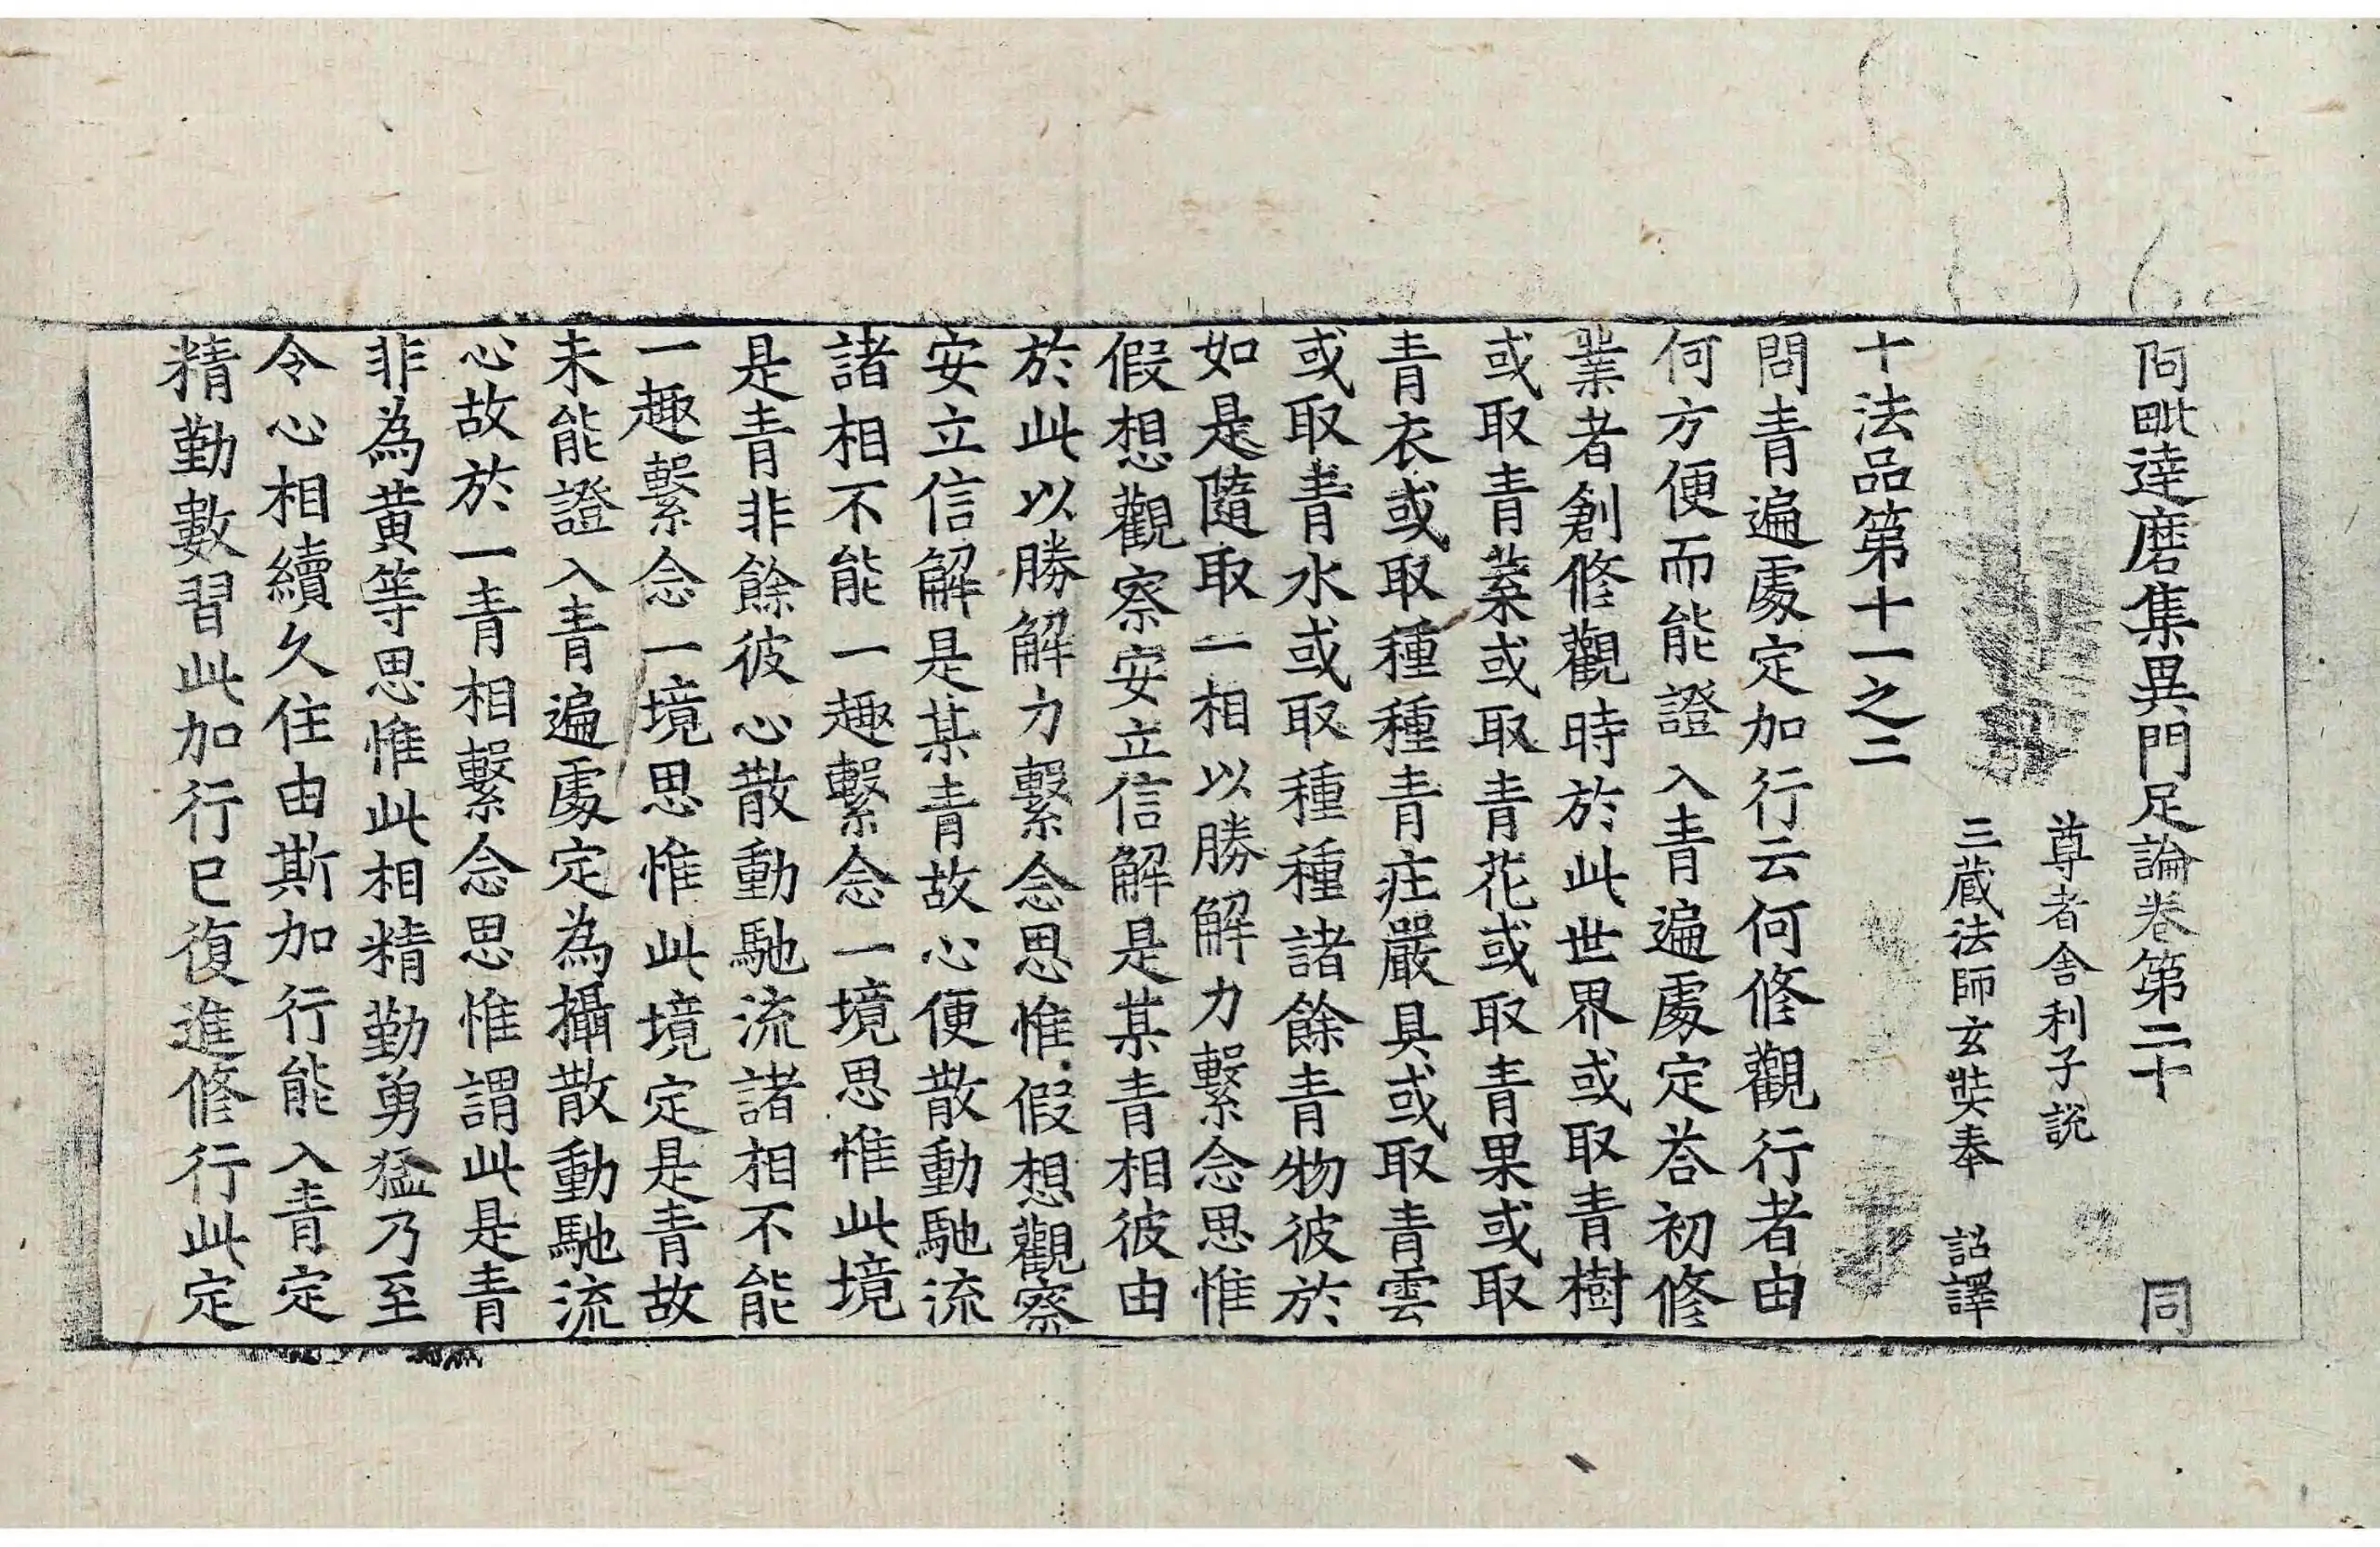 阿毗達磨集異門足論卷第二十 同
尊者舍利子說
三藏法師玄奘奉 詔譯
十法品第十一之二
問青遍處定加行云何修觀行者由
何方便而能證入青遍處定荅初修
業者創修觀時於此世界或取青樹
或取青葉或取青花或取青果或取
青衣或取種種青莊嚴具或取青雲
或取青水或取種種諸餘青物彼於
如是隨取一相以勝解力繫念思惟
假想觀察安立信解是某青相彼由
於此以勝解力繫念思惟假想觀察
安立信解是某青故心便散動馳流
諸相不能一趣繫念一境思惟此境
是青非餘彼心散動馳流諸相不能
一趣繫念一境思惟此境定是青故
未能證入青遍處定為攝散動馳流
心故於一青相繫念思惟謂此是青
非為黃等思惟此相精勤勇猛乃至
令心相續久住由斯加行能入青定
精勤數習此加行已復進修行此定